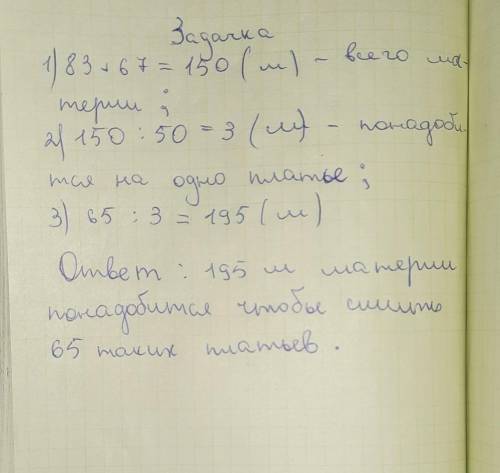 Задачка
1) 83 + 67 = 150 (м) - всего ма-
терии ;
2) 150 : 50 = 3 (м) - понадоби
тся на одно платье ;
3) 65 : 3 = 195 (м)
Ответ : 195 м материи
понадобится чтобы сшить
65 таких платьев .